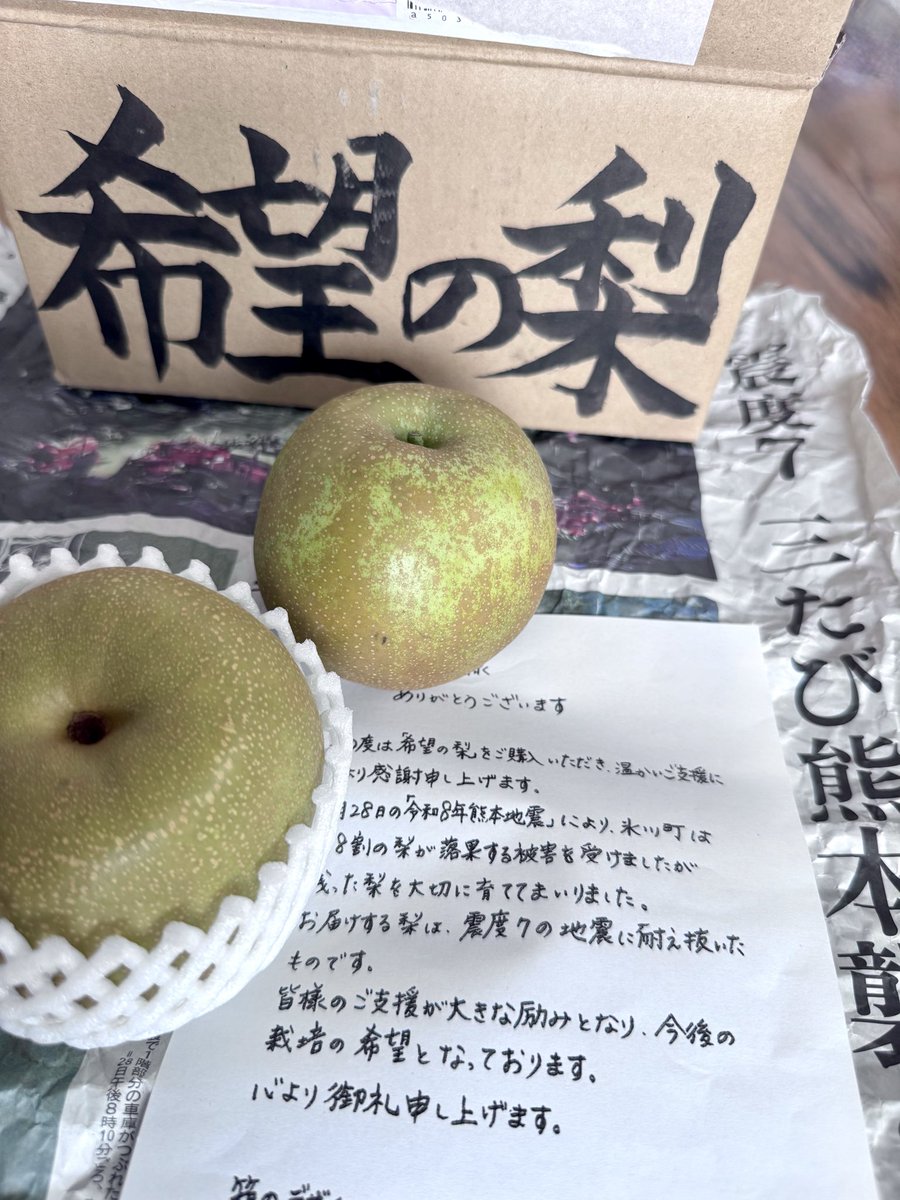 a503
希望の梨
震度7 三たび熊本襲
ありがとうございます
の度は「希望の梨」をご購入いただき、温かいご支援に
より感謝申し上げます。
月28日の「令和8年熊本地震」により、氷川町は
8割の梨が落果する被害を受けましたが
残った梨を大切に育ててまいりました。
お届けする梨は、震度7の地震に耐え抜いた
ものです。
皆様のご支援が大きな励みとなり、今後の
栽培の希望となっております。
心より御礼申し上げます。
箱のデザ
で1階部分の車庫がつぶれた
28日午後8時10分ごろ、